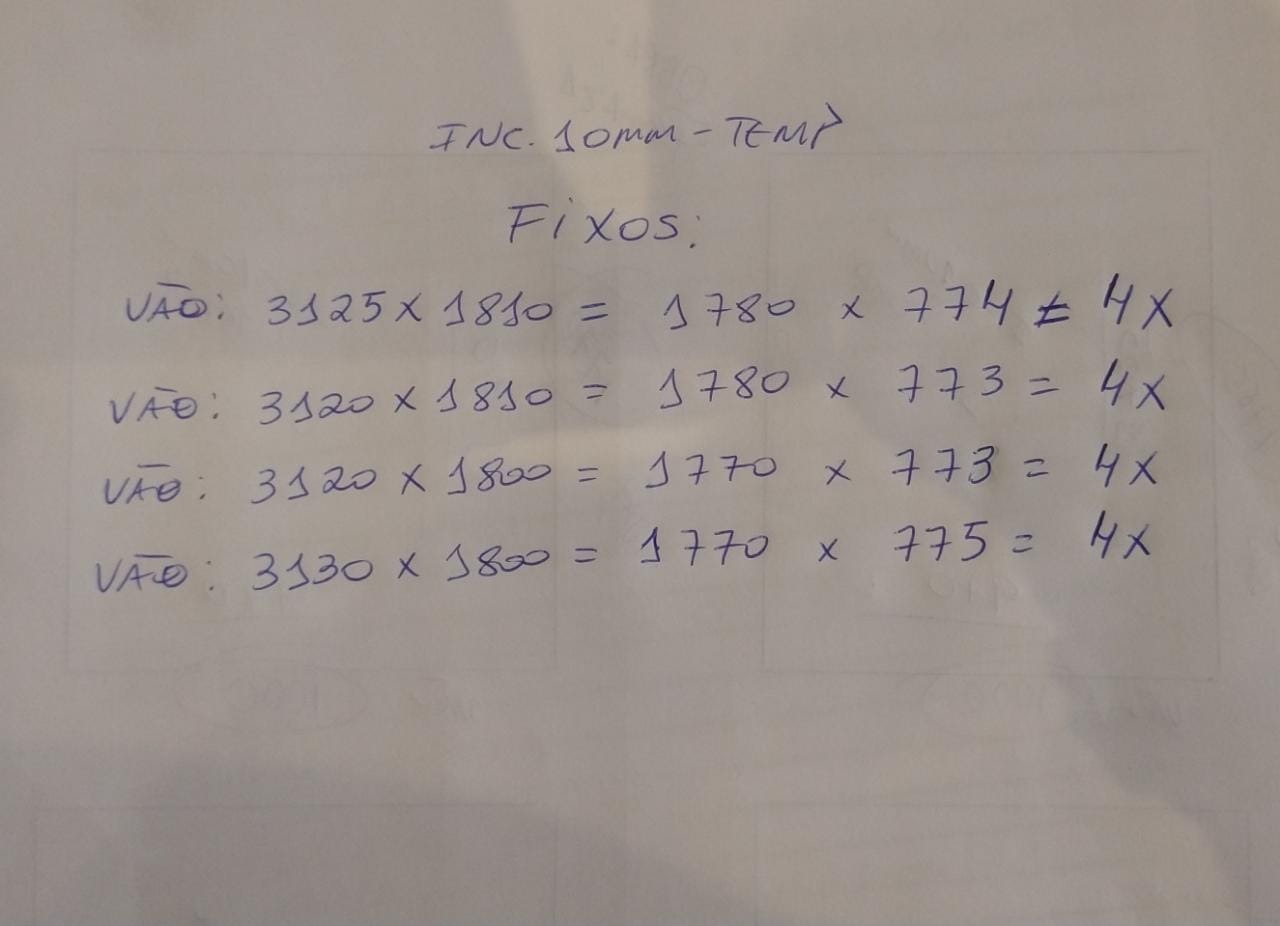 INC. 10mm - TEMP
FiXOS:
VÃO: 3125 X 1810 = 1780 x 774 = 4X
VÃO: 3120 X 1810 = 1780 x 773 = 4X
VÃO: 3120 X 1800 = 1770 x 773 = 4X
VÃO: 3130 X 1800 = 1770 x 775 = 4X